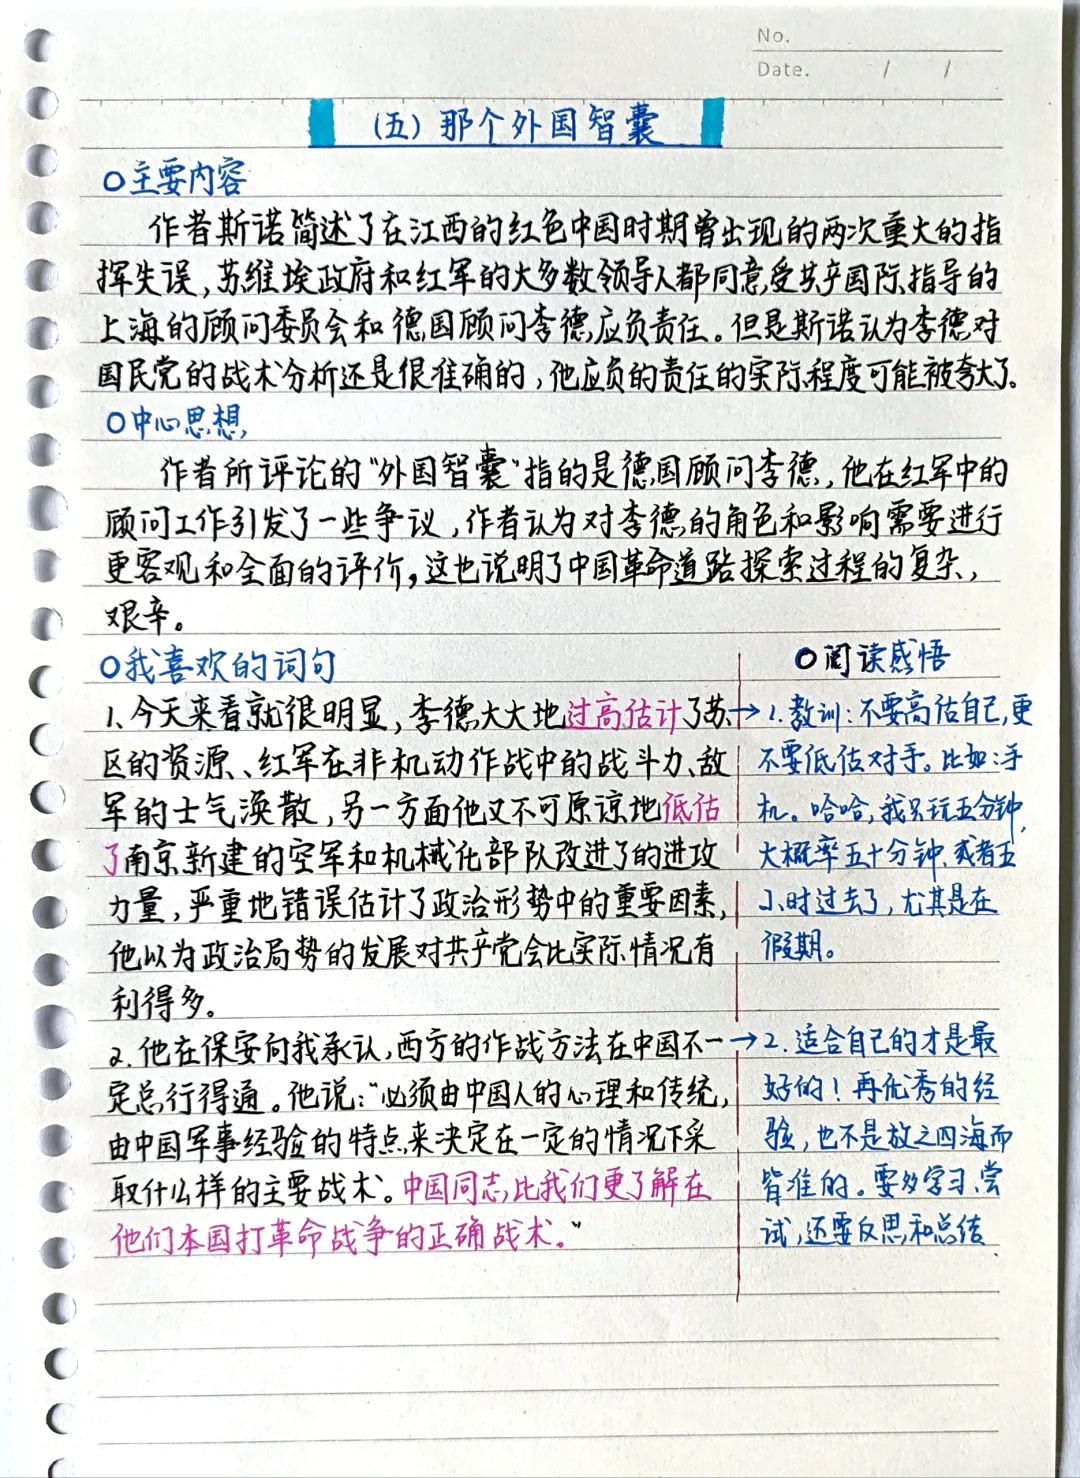 No.
Date. / /
（五）那个外国智囊
○主要内容
作者斯诺简述了在江西的红色中国时期曾出现的两次重大的指
挥失误，苏维埃政府和红军的大多数领导人都同意，受共产国际指导的
上海的顾问委员会和德国顾问李德应负责任。但是斯诺认为李德对
国民党的战术分析还是很准确的，他应负的责任的实际程度可能被夸大了。
○中心思想
作者所评论的“外国智囊”指的是德国顾问李德，他在红军中的
顾问工作引发了一些争议，作者认为对李德的角色和影响需要进行
更客观和全面的评价，这也说明了中国革命道路探索过程的复杂，
艰辛。
○我喜欢的词句
1、今天来看就很明显，李德大大地过高估计了苏
区的资源、红军在非机动作战中的战斗力、敌
军的士气涣散，另一方面他又不可原谅地低估
了南京新建的空军和机械化部队改进了的进攻
力量，严重地错误估计了政治形势中的重要因素，
他以为政治局势的发展对共产党会比实际情况有
利得多。
2. 他在保安向我承认，西方的作战方法在中国不一
定总行得通。他说：“必须由中国人的心理和传统，
由中国军事经验的特点来决定在一定的情况下采
取什么样的主要战术。中国同志比我们更了解在
他们本国打革命战争的正确战术。”
○阅读感悟
→1. 教训：不要高估自己，更
不要低估对手。比如：手
机。哈哈，我只玩五分钟，
大概率五十分钟、或者五
小时过去了，尤其是在
假期。
→2. 适合自己的才是最
好的！再优秀的经
验，也不是放之四海而
皆准的。要多学习、尝
试，还要反思和总结.